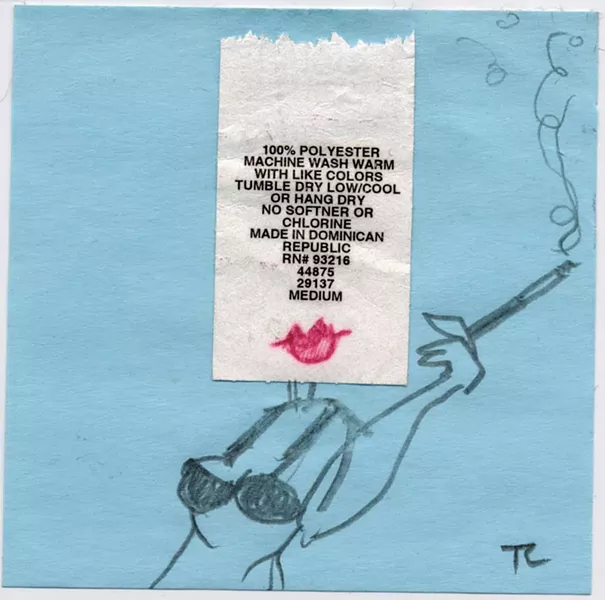 100% POLYESTER
MACHINE WASH WARM
WITH LIKE COLORS
TUMBLE DRY LOW/COOL
OR HANG DRY
NO SOFTNER OR
CHLORINE
MADE IN DOMINICAN
REPUBLIC
RN# 93216
44875
29137
MEDIUM